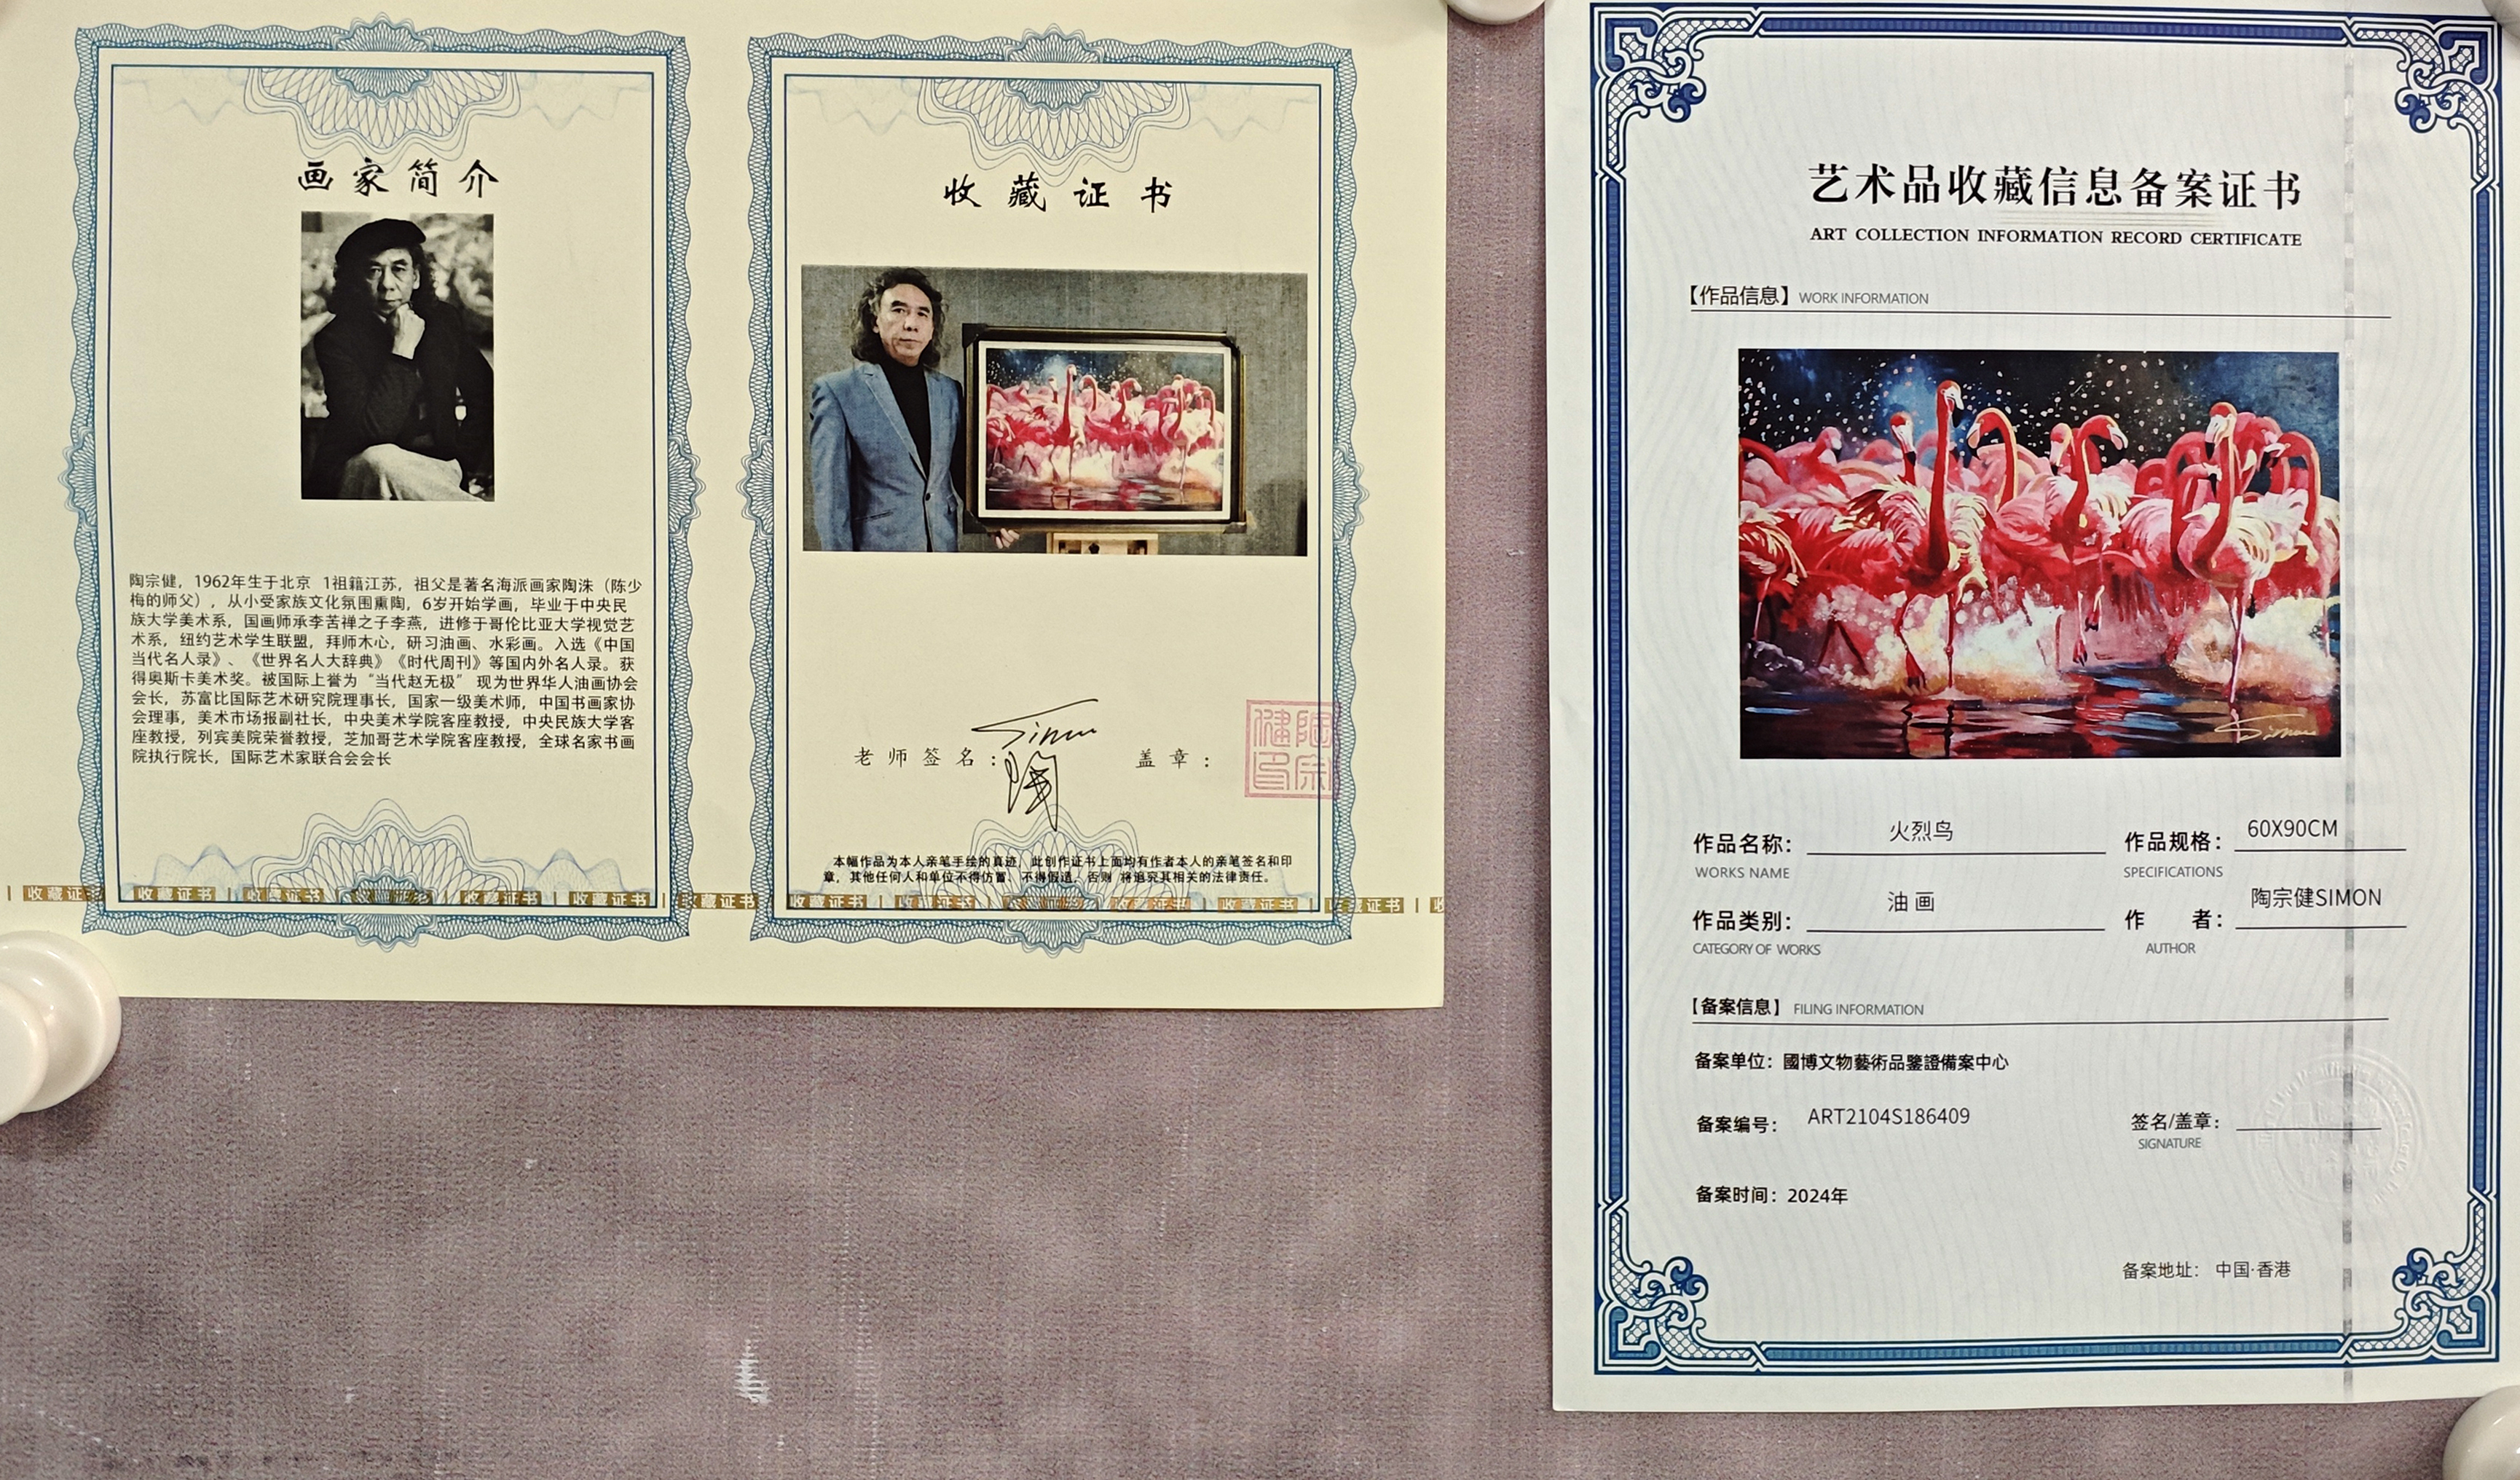 画家简介
陶宗健，1962年生于北京 1祖籍江苏，祖父是著名海派画家陶洙（陈少
梅的师父），从小受家族文化氛围熏陶，6岁开始学画，毕业于中央民
族大学美术系，国画师承李苦禅之子李燕，进修于哥伦比亚大学视觉艺
术系，纽约艺术学生联盟，拜师木心，研习油画、水彩画。入选《中国
当代名人录》、《世界名人大辞典》《时代周刊》等国内外名人录。获
得奥斯卡美术奖。被国际上誉为“当代赵无极” 现为世界华人油画协会
会长，苏富比国际艺术研究院理事长，国家一级美术师，中国书画家协
会理事，美术市场报副社长，中央美术学院客座教授，中央民族大学客
座教授，列宾美院荣誉教授，芝加哥艺术学院客座教授，全球名家书画
院执行院长，国际艺术家联合会会长
收藏证书
老师签名：
Simon
陶
盖章：
陶宗健印
本幅作品为本人亲笔手绘的真迹，此创作证书上面均有作者本人的亲笔签名和印
章，其他任何人和单位不得仿冒、不得假造，否则 将追究其相关的法律责任。
收藏证书 收藏证书 收藏证书 收藏证书 收藏证书 收藏证书 收藏证书 收藏证书 收藏证书 收藏证书 收藏证书 收藏证书 收藏证书
艺术品收藏信息备案证书
ART COLLECTION INFORMATION RECORD CERTIFICATE
【作品信息】WORK INFORMATION
Simon
作品名称： 火烈鸟 作品规格： 60X90CM
WORKS NAME SPECIFICATIONS
作品类别： 油画 作 者： 陶宗健SIMON
CATEGORY OF WORKS AUTHOR
【备案信息】 FILING INFORMATION
备案单位：國博文物藝術品鑒證備案中心
备案编号： ART2104S186409 签名/盖章：
SIGNATURE
备案时间：2024年
备案地址： 中国·香港